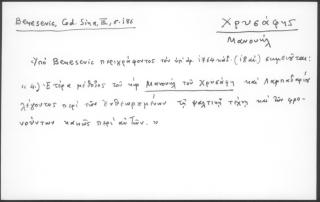 Benesevic, Cod. Sina, III, σ. 186
Χρυσάφης
Μανουήλ
Ὑπὸ Benesevic περιγράφοντος τὸν ὑπ' ἀρ. 1764 κώδ. (18 αἰ.) σημειοῦται:
" 4.) Ἑτέρα μέθοδος τοῦ κὺρ Μανουὴλ τοῦ Χρυσάφη καὶ Λαμπαδαρίου
λέγοντος περὶ τῶν ἐνθεωρουμένων τῇ ψαλτικῇ τέχνῃ καὶ ὧν φρο-
νοῦντων κακῶς περὶ αὐτῶν. »